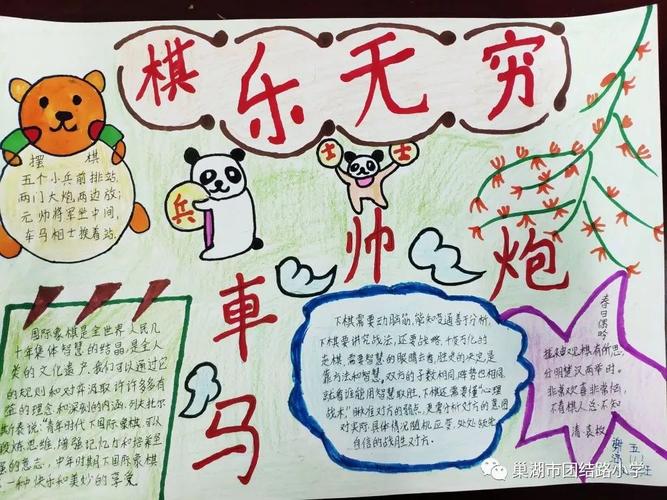 棋乐无穷
摆 棋
五个小兵前排站,
两门大炮两边放;
元帅将军坐中间,
车马相士挨着站.
兵
士
士
帅
炮
車
马
国际象棋是全世界人民几
十年集体智慧的结晶,是全人
类的文化遗产.我们可以通过它
的规则和对弈汲取许许多多有
的理念和深刻的内涵.列夫托尔
斯泰说:"青年时代下国际象棋,可以
锻炼思维,增强记忆力和培养坚
的意志,中年时期下国际象棋
一种快乐和美妙的享受.
下棋需要动脑筋,能知变通善于分析,
下棋要讲究战法,还要战略,千变万化的
走棋,需要智慧的眼睛去看,胜失的决定是
靠方法和智慧,双方的子数相同,阵势也相同,
就看谁能用智慧取胜,下棋还需要懂"心理
战术"瞅准对方的弱点,更需分析对方的意图
对实际.具体情况随机应变,处处
自信的战胜对方.
春日偶吟
拢袖观棋有所思,
分明楚汉两举时.
非常欢喜非常恼,
不着棋人总不知
清·袁枚
五
巢湖市团结路小学